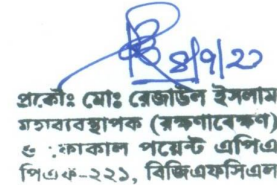 ৪/৭/২২
প্রকৌঃ মোঃ রেজাউল ইসলাম
মহাব্যবস্থাপক (রক্ষণাবেক্ষণ)
ও ফোকাল পয়েন্ট এপিএ
পিএফ-২২১, বিজিএফসিএল